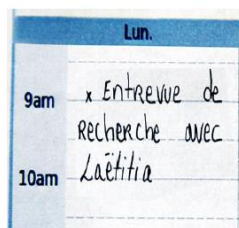 Lun.
9am x Entrevue de
Recherche avec
10am Laëtitia